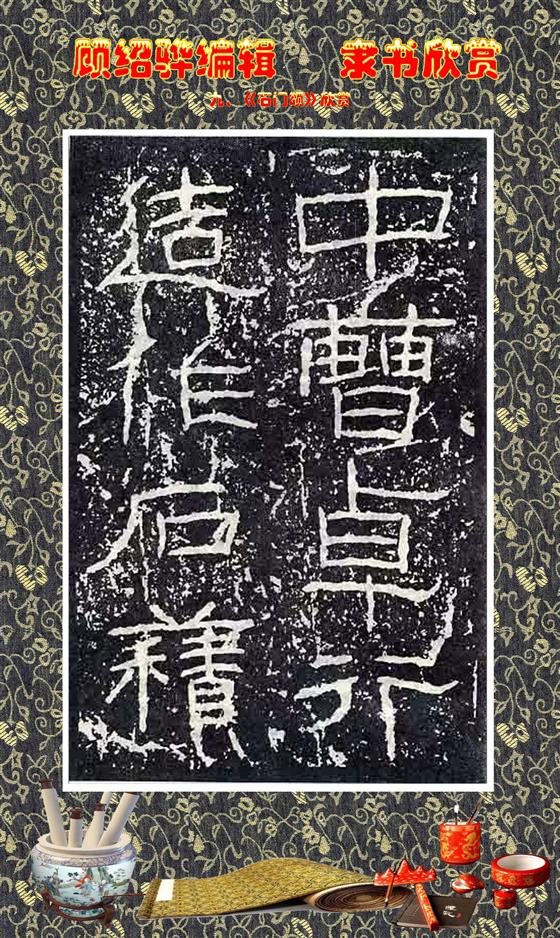 顾绍骅编辑 隶书欣赏
九、《石门颂》欣赏
中曹卓行
造作石積